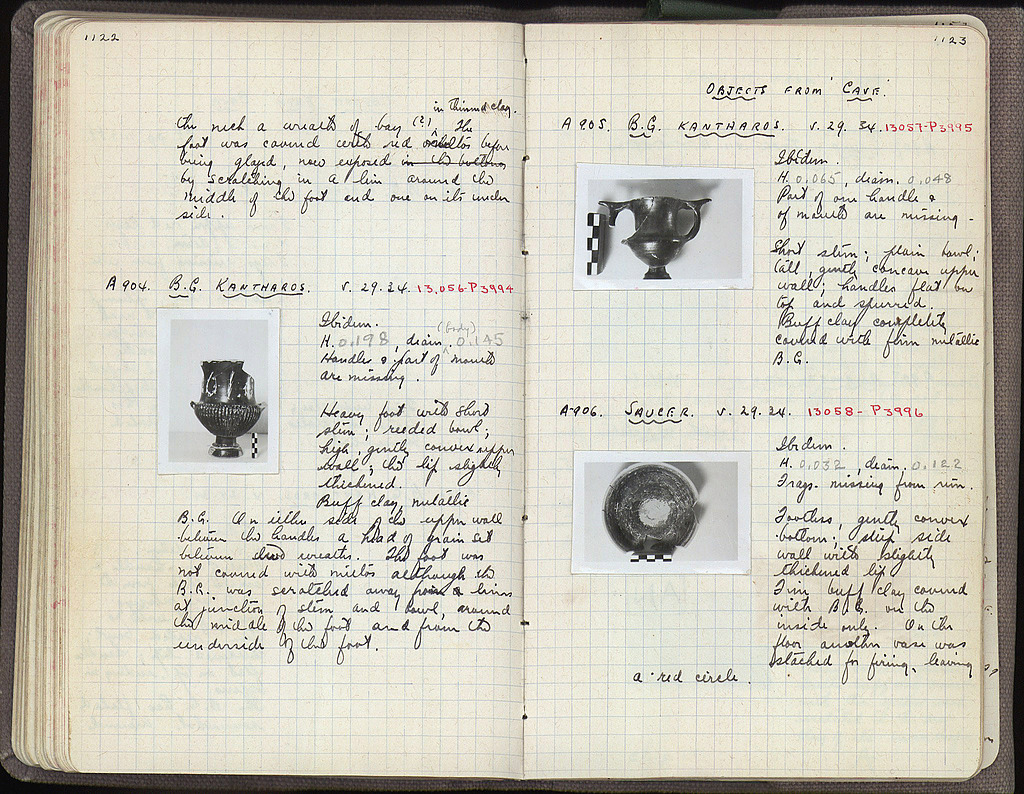 1122
in thinned clay.
the neck a wreath of bay (?) The
foot was covered with red miltos before
being glazed, now exposed in the bottoms
by scratching in a line around the
middle of the foot and one on its under
side.
A 904. B.G. KANTHAROS. V. 29. 34. 13,056-P3994
Ibidem.
(body)
H. 0.198, diam. 0.145
Handles & part of mouth
are missing.
Heavy foot with short
stem; reeded bowl;
high, gently convex upper
wall; the lip slightly
thickened.
Buff clay, metallic
B.G. On either side of the upper wall
between the handles a head of grain set
between wreaths. The foot was
not covered with miltos although the
B.G. was scratched away from a lines
at junction of stem and bowl, around
the middle of the foot and from the
underside of the foot.
1123
OBJECTS FROM 'CAVE'.
A 905. B.G. KANTHAROS. V. 29. 34. 13057-P3995
Ibidem.
H. 0.065, diam. 0.048
Part of one handle &
of mouth are missing -
Short stem; plain bowl;
tall, gently concave upper
wall; handles flat on
top and spurred.
Buff clay completely
covered with firm metallic
B.G.
A-906. SAUCER. V. 29. 34. 13058- P3996
Ibidem.
H. 0.032, diam. 0.122
Frags. missing from rim.
Footless, gently convex
bottom; steep side
wall with slightly
thickened lip.
Fine buff clay covered
with B.G. on the
inside only. On the
floor another vase was
stacked for firing, leaving
a red circle.